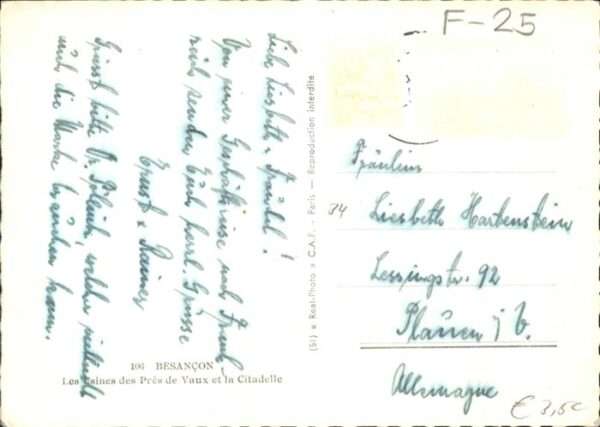 F-25
Lieb Liesbeth & Friedel!
Von einer Geschäftsreise nach Frank-
reich senden Euch herzl. Grüsse
Ernst & Rainer
Grüsst bitte welcher vielleicht
auch die Marke brauchen kann.
106 BESANÇON
Les Usines des Prés de Vaux et la Citadelle
(SI) « Real-Photo » C.A.P. - Paris — Reproduction interdite
Fräulein
34
Liesbeth Hartenstein
Lessingstr. 92
Plauen i/V.
Allemagne
€ 3,50